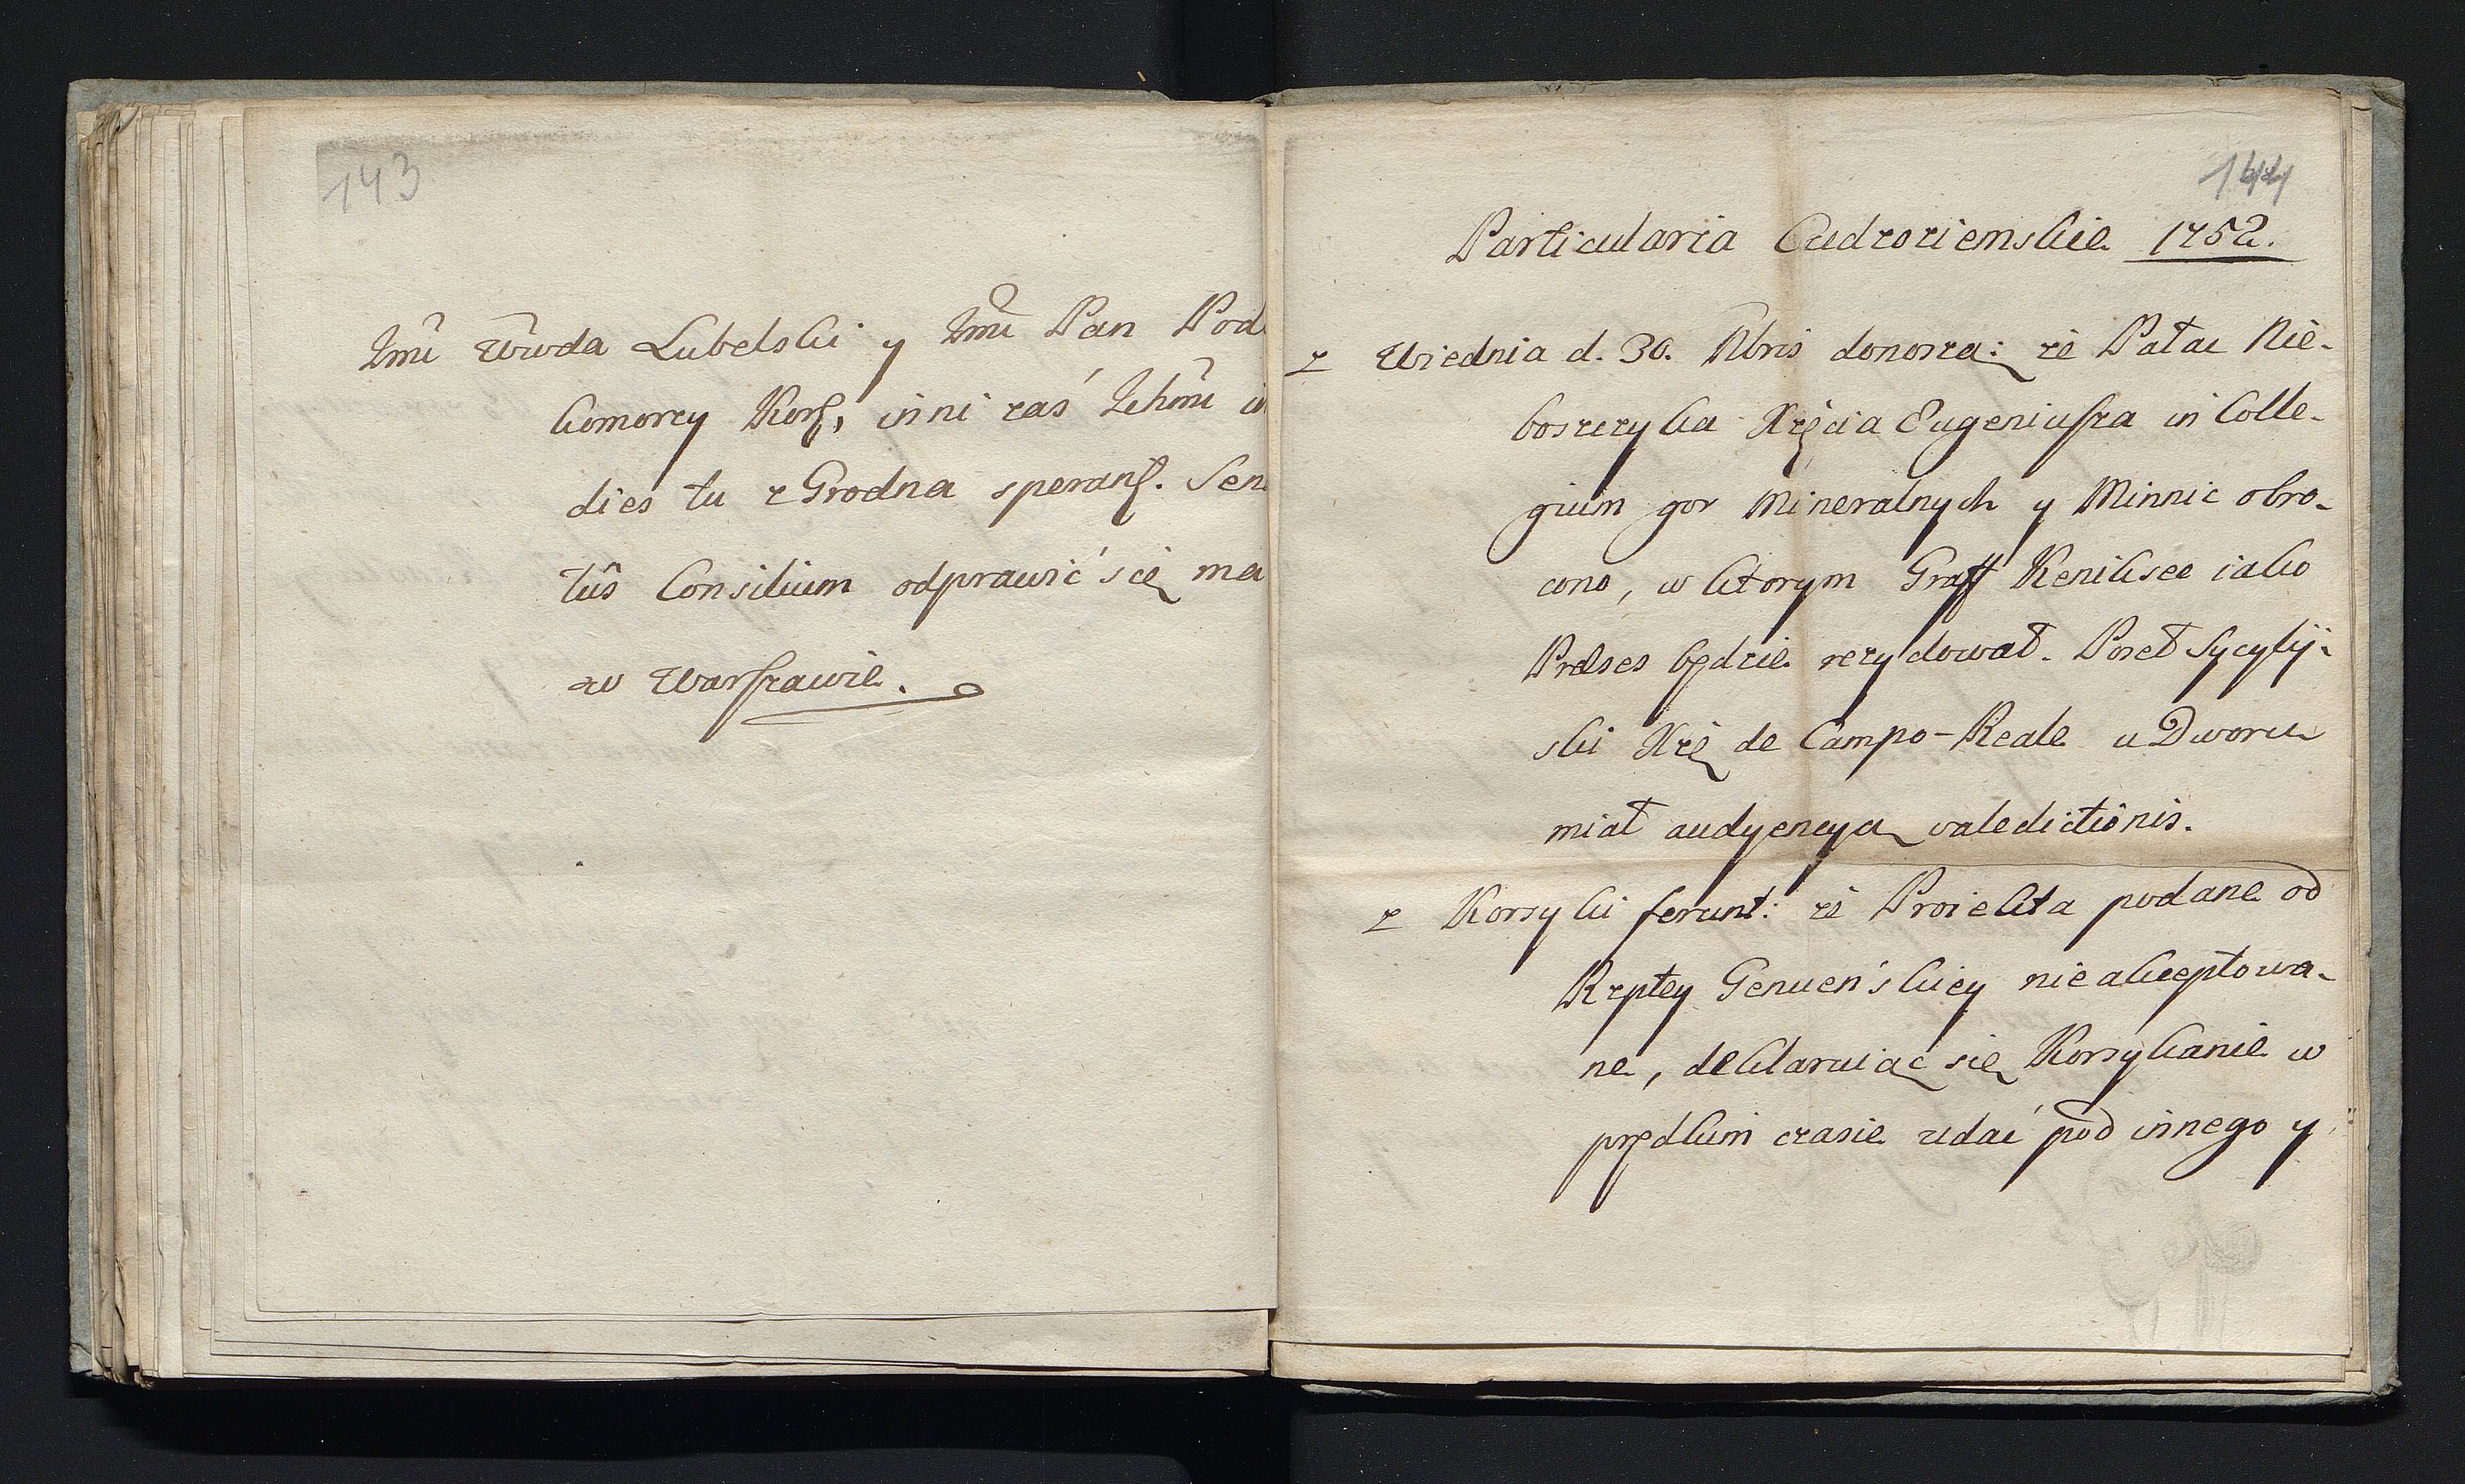 143
Jmć Wwda Lubelski y Jmć Pan Pod
komorzy Kor, inni zaś Ichmć in
dies tu z Grodna sperant. Sena
tûs Consilium odprawić się ma
w Warszawie.
144
Particularia Cudzoziemskie 1752.
z Wiednia d. 30. Nbris donoszą: że Pałac Nie-
boszczyka Xżęcia Eugeniusza in Colle-
gium gor Mineralnych y Minnic obro-
cono, w ktorym Graff Keniksee iako
Præses będzie rezydował. Poseł Sycylÿ-
ski Xżę de Campo-Reale u Dworu
miał audyencyą valedictiônis.
z Korsyki ferunt: że Proiekta podane od
Rzptey Genueńskiey nieakceptowa-
ne, deklaruiąc się Korsykanie w
prędkim czasie udać pod innego y